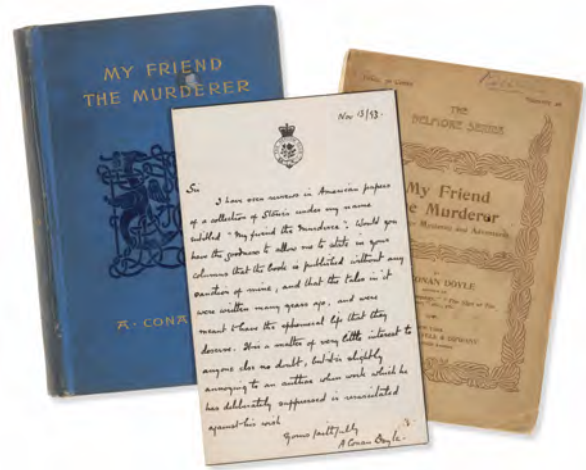 MY FRIEND
THE MURDERER
A. CONA
Nov 13/93.
Sir
I have seen reviews in American papers
of a collection of Stories under my name
entitled "My friend the Murderer". Would you
have the goodness to allow me to state in your
columns that the book is published without any
sanction of mine, and that the tales in it
were written many years ago, and were
meant to have the ephemeral life that they
deserve. It is a matter of very little interest to
anyone else no doubt, but it is slightly
annoying to an author when work which he
has deliberately suppressed is resuscitated
against his wish
Yours faithfully
A Conan Doyle.
THE
BELMORE SERIES
My Friend
he Murderer
Mysteries and Adventures
BY
CONAN DOYLE
NEW YORK
& COMPANY